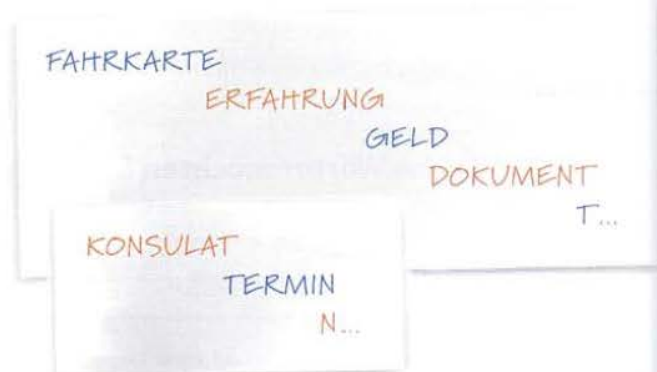 FAHRKARTE
ERFAHRUNG
GELD
DOKUMENT
T...
KONSULAT
TERMIN
N...